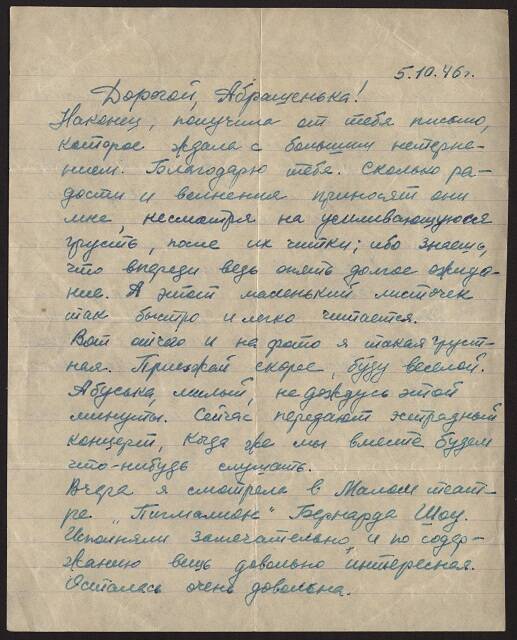 5.10.46 г.
Дорогой, Абрашенька!
Наконец, получила от тебя письмо,
которое ждала с большим нетерпе-
нием. Благодарю тебя. Сколько ра-
дости и волнения приносят они
мне, несмотря на усиливающуюся
грусть, после их читки; ибо знаешь,
что впереди ведь опять долгое ожида-
ние. А этот маленький листочек
так быстро и легко читается.
Вот отчего и на фото я такая груст-
ная. Приезжай скорее, буду веселой.
Абуська, милый, не дождусь этой
минуты. Сейчас передают эстрадный
концерт, когда же мы вместе будем
что-нибудь слушать.
Вчера я смотрела в Малом теат-
ре „Пигмалион" Бернарда Шоу.
Исполняли замечательно, и по содер-
жанию вещь довольно интересная.
Осталась очень довольна.